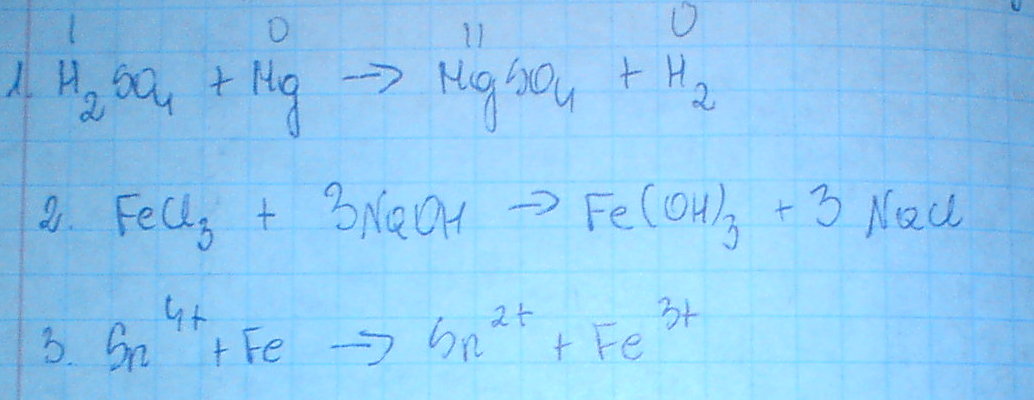 I 0 II 0
1. H₂SO₄ + Mg → MgSO₄ + H₂
2. FeCl₃ + 3NaOH → Fe(OH)₃ + 3 NaCl
3. Sn⁴⁺ + Fe → Sn²⁺ + Fe³⁺